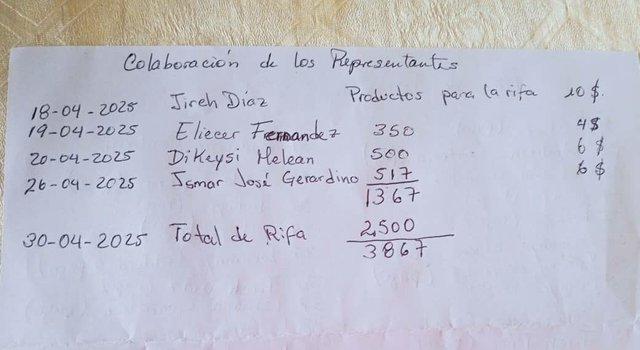 Colaboración de los Representantes
18-04-2025 Jireh Díaz Productos para la rifa 10 $.
19-04-2025 Eliecer Fernandez 350 4$
20-04-2025 Dikeysi Melean 500 6 $
26-04-2025 Ismar José Gerardino 517 6 $
1367
30-04-2025 Total de Rifa 2,500
3867